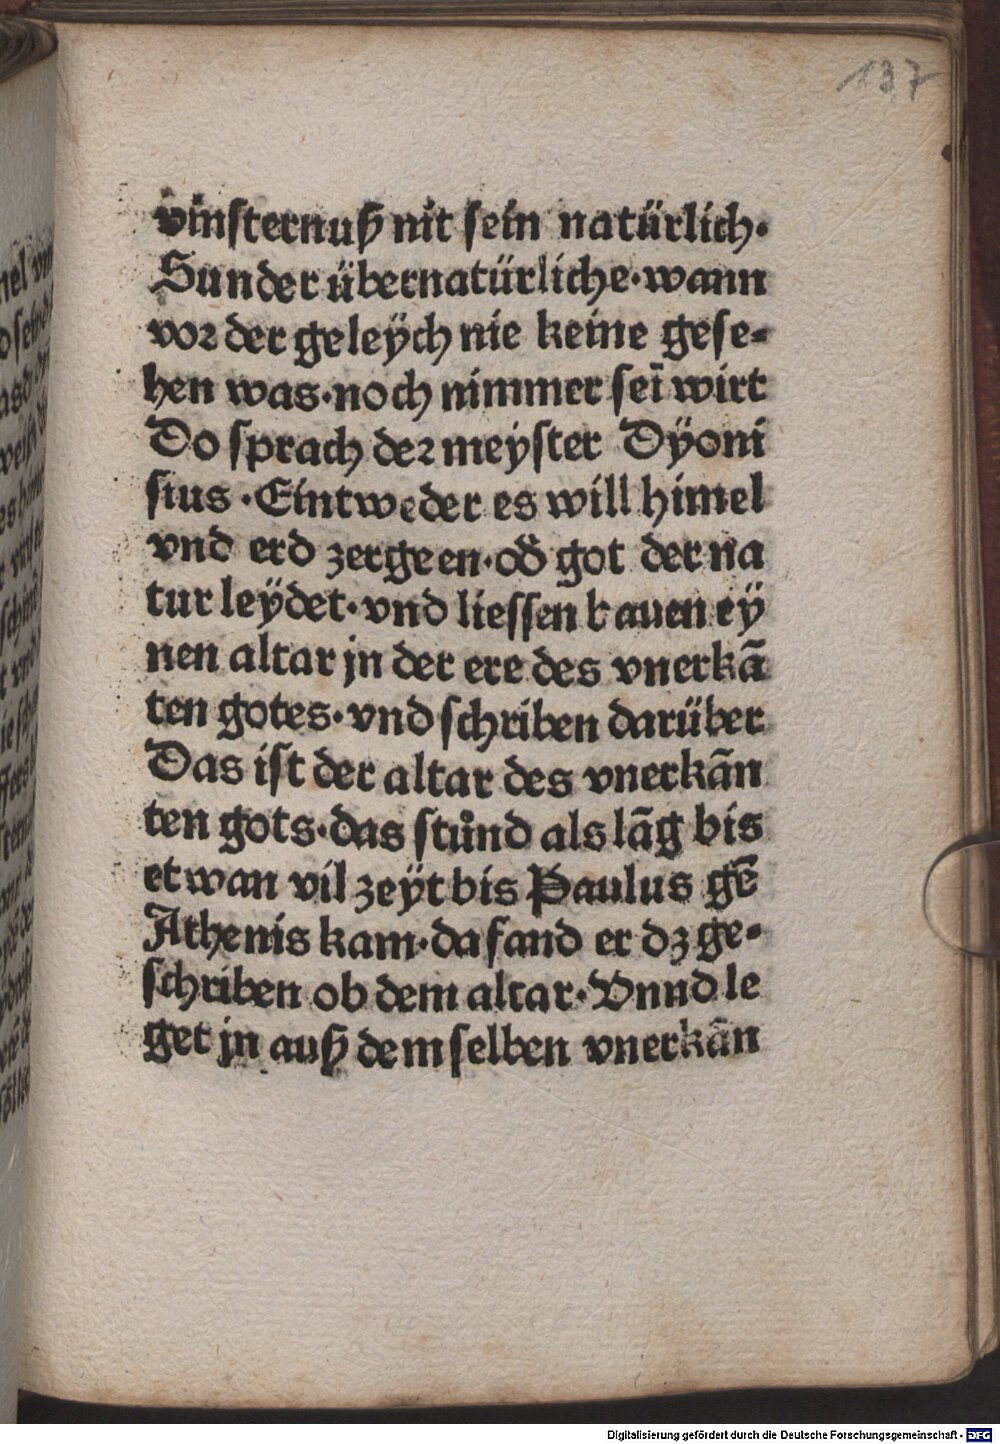 137
vinsternuß nit sein natürlich·
Sunder übernatürliche·wann
vor der geleÿch nie keine gese-
hen was·noch nimmer seī wirt
Do sprach der meyster Dÿoni
sius·Eintweder es will himel
vnd erd zergeen·od̄ got der na
tur leÿdet·vnd liessen bauen eÿ
nen altar jn der ere des vnerkā
ten gotes·vnd schriben darüber
Das ist der altar des vnerkān
ten gots·das stůnd als lāg bis
etwan vil zeÿt bis Paulus gē
Athenis kam·da fand er dz ge-
schriben ob dem altar·Vnnd le
get jn auß dem selben vnerkān
Digitalisierung gefördert durch die Deutsche Forschungsgemeinschaft - DFG